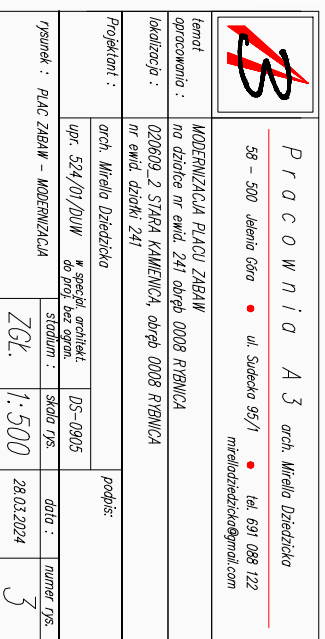 Pracownia A3 arch. Mirella Dziedzicka
58 - 500 Jelenia Góra • ul. Sudecka 95/1 • tel. 691 088 122
mirelladziedzicka@gmail.com
temat opracowania : MODERNIZACJA PLACU ZABAW
na działce nr ewid. 241 obręb 0008 RYBNICA
lokalizacja : 020609_2 STARA KAMIENICA, obręb 0008 RYBNICA
nr ewid. działki 241
Projektant : arch. Mirella Dziedzicka podpis:
upr. 524/01/DUW w specjal. architekt. do proj. bez ogran. DS-0905
rysunek : PLAC ZABAW - MODERNIZACJA
stadium : skala rys. data : numer rys.
ZGŁ. 1:500 28.03.2024 3